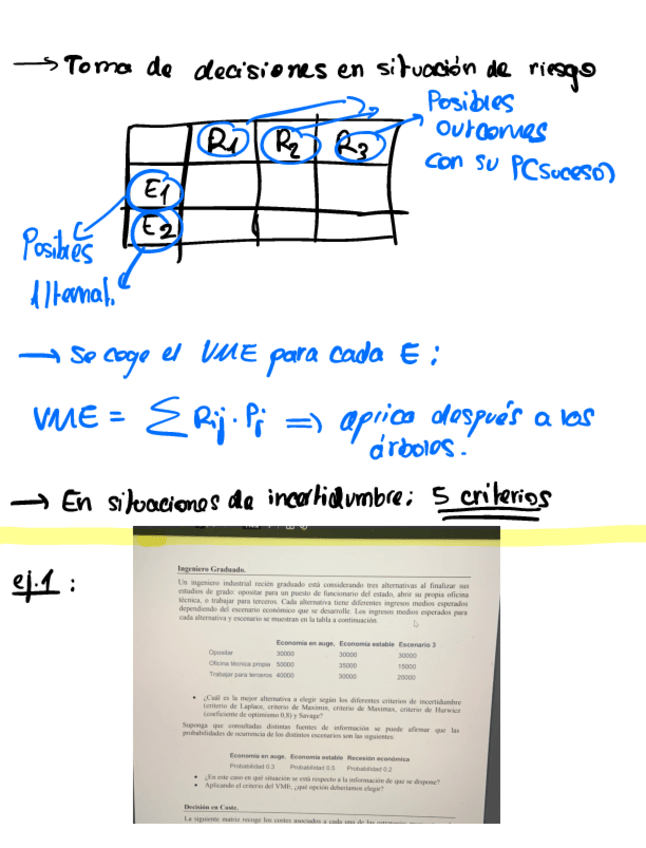 → Toma de decisiones en situación de riesgo
Posibles
outcomes
con su P(suceso)
R1 R2 R3
E1
E2
Posibles
Alternat.
→ Se coge el VME para cada E:
VME = Σ Rij · Pj ⇒ aplica después a los
árboles.
→ En situaciones de incertidumbre: 5 criterios
ej.1:
Ingeniero Graduado.
Un ingeniero industrial recién graduado está considerando tres alternativas al finalizar sus
estudios de grado: opositar para un puesto de funcionario del estado, abrir su propia oficina
técnica, o trabajar para terceros. Cada alternativa tiene diferentes ingresos medios esperados
dependiendo del escenario económico que se desarrolle. Los ingresos medios esperados para
cada alternativa y escenario se muestran en la tabla a continuación.
Economía en auge, Economía estable Escenario 3
Opositar 30000 30000 30000
Oficina técnica propia 50000 35000 15000
Trabajar para terceros 40000 30000 20000
• ¿Cuál es la mejor alternativa a elegir según los diferentes criterios de incertidumbre
(criterio de Laplace, criterio de Maximin, criterio de Maximax, criterio de Hurwicz
(coeficiente de optimismo 0,8) y Savage?
Suponga que consultadas distintas fuentes de información se puede afirmar que las
probabilidades de ocurrencia de los distintos escenarios son las siguientes:
Economía en auge, Economía estable Recesión económica
Probabilidad 0.3 Probabilidad 0.5 Probabilidad 0.2
• ¿En este caso en qué situación se está respecto a la información de que se dispone?
• Aplicando el criterio del VME, ¿qué opción deberíamos elegir?
Decisión en Coste.
La siguiente matriz recoge los costes asociados a cada una de las